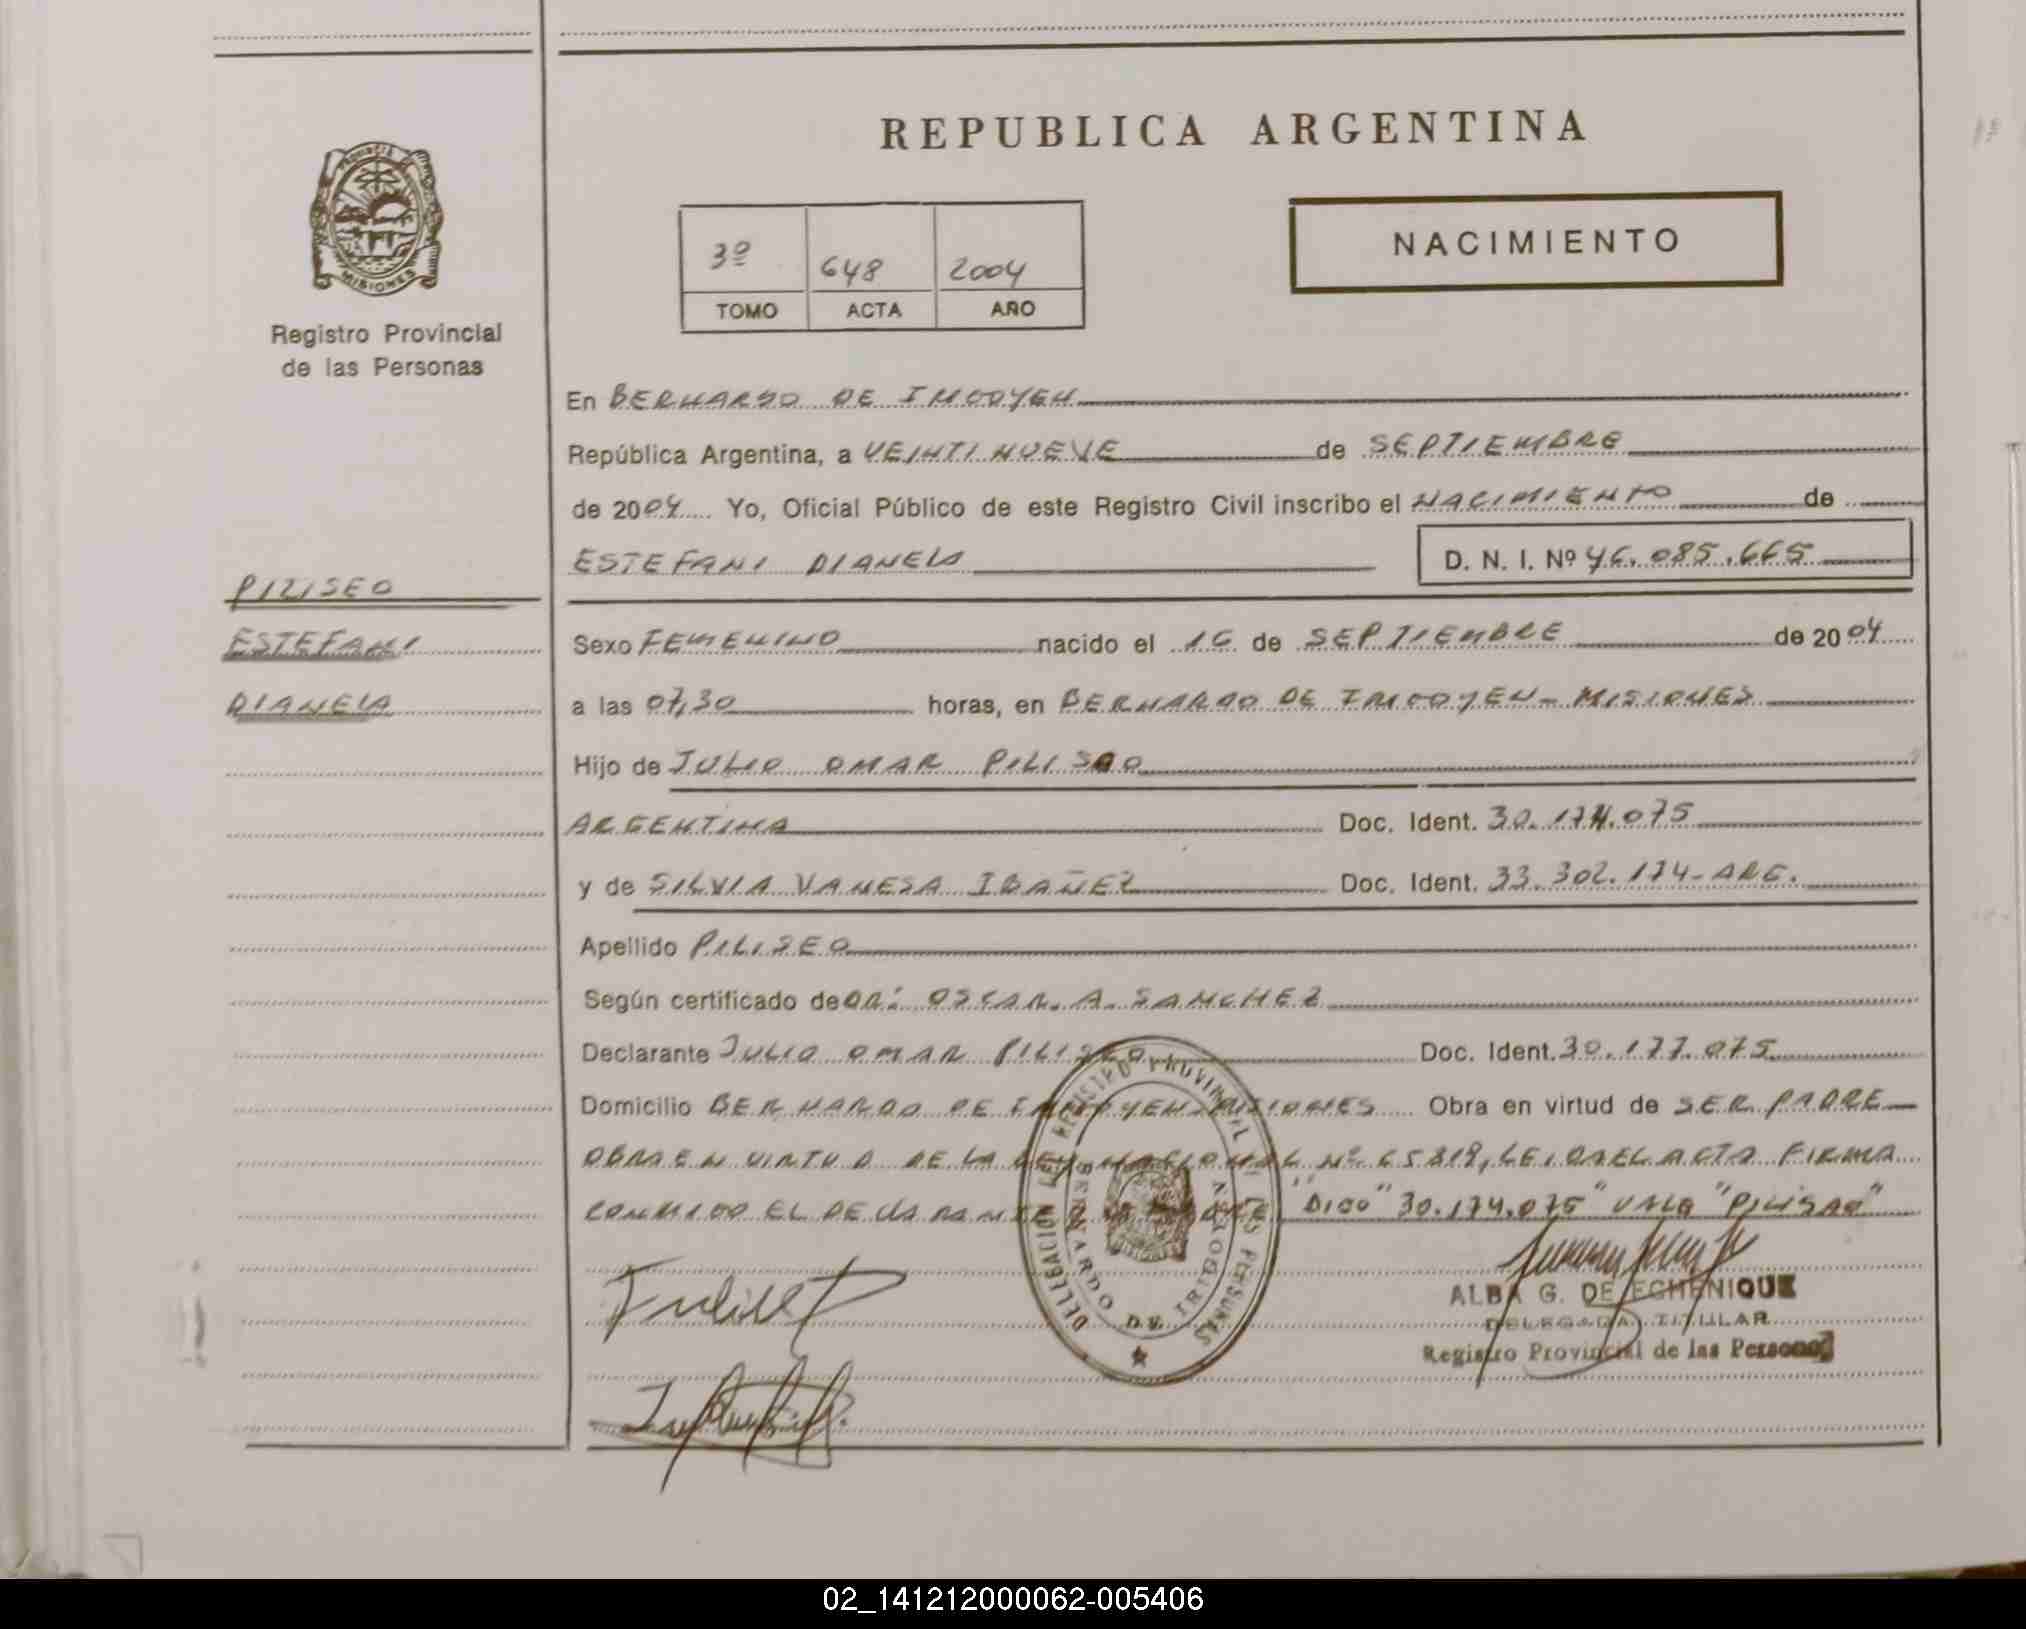 REPUBLICA ARGENTINA
PROVINCIA DE MISIONES
Registro Provincial
de las Personas
3º 648 2004
TOMO ACTA AÑO
NACIMIENTO
En BERNARDO DE IRIGOYEN
República Argentina, a VEINTINUEVE de SEPTIEMBRE
de 2004 Yo, Oficial Público de este Registro Civil inscribo el NACIMIENTO de
ESTEFANI DIANELA D. N. I. Nº 46.085.665
PILISEO
ESTEFANI
DIANELA
Sexo FEMENINO nacido el 16 de SEPTIEMBRE de 2004
a las 07,30 horas, en BERNARDO DE IRIGOYEN - MISIONES
Hijo de JULIO OMAR
ARGENTINA Doc. Ident. 30.174.075
y de SILVIA VANESA IBAÑEZ Doc. Ident. 33.302.174-ARG.
Apellido PILISEO
Según certificado de DR: OSCAR. A. SANCHEZ
Declarante JULIO OMAR PILISEO Doc. Ident. 30.177.075
Domicilio BERNARDO DE IRIGOYEN-MISIONES Obra en virtud de SER PADRE
OBRA EN VIRTUD DE LA LEY NACIONAL Nº LEIDA EL ACTA FIRMA
CONMIGO EL DECLARANTE "30.174.075" VALE
DELEGACION DEL REGISTRO PROVINCIAL DE LAS PERSONAS
BERNARDO DE IRIGOYEN
ALBA G. DE ECHENIQUE
DELEGADA TITULAR
Registro Provincial de las Personas
02_141212000062-005406